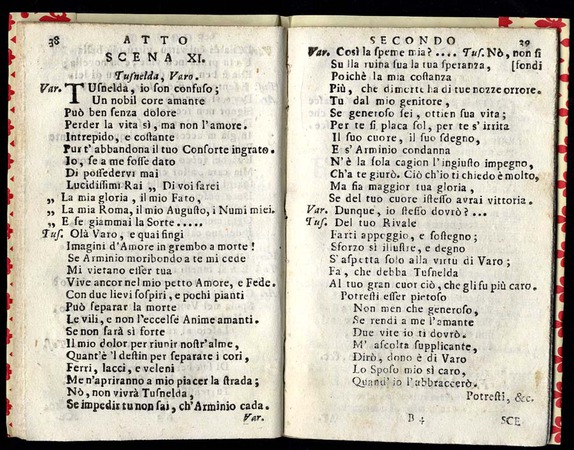 38 ATTO
SCENA XI.
Tusnelda, Varo.
Var. TUsnelda, io son confuso;
Un nobil core amante
Può ben senza dolore
Perder la vita sì, ma non l'amore.
Intrepido, e costante
Pur t'abbandona il tuo Consorte ingrato.
Io, se a me fosse dato
Di possedervi mai
Lucidissimi Rai „ Di voi farei
„ La mia gloria, il mio Fato,
„ La mia Roma, il mio Augusto, i Numi miei.
„ E se giammai la Sorte .....
Tus. Olà Varo, e quai fingi
Imagini d'Amore in grembo a morte!
Se Arminio moribondo a te mi cede
Mi vietano esser tua
Vive ancor nel mio petto Amore, e Fede.
Con due lievi sospiri, e pochi pianti
Può separar la morte
Le vili, e non l'eccelse Anime amanti.
Se non sarà sì forte
Il mio dolor per riunir nostr'alme,
Quant'è 'l destin per separare i cori,
Ferri, lacci, e veleni
Me n'apriranno a mio piacer la strada;
Nò, non vivrà Tusnelda,
Se impedir tu non sai, ch'Arminio cada.
Var.
SECONDO 39
Var. Così la speme mia? .... Tus. Nò, non si
Sulla ruina sua la tua speranza, [fondi
Poichè la mia costanza
Più, che di morte ha di tue nozze orrore.
Tu dal mio genitore,
Se generoso sei, ottien sua vita;
Per te si placa sol, per te s'irrita
Il suo cuore, il suo sdegno,
E s'Arminio condanna
N'è la sola cagion l'ingiusto impegno,
Ch'a te giurò. Ciò ch'io ti chiedo è molto,
Ma fia maggior tua gloria,
Se del tuo cuore istesso avrai vittoria.
Var. Dunque, io stesso dovrò? ...
Tus. Del tuo Rivale
Farti appoggio, e sostegno;
Sforzo sì illustre, e degno
S'aspetta solo alla virtu di Varo;
Fa, che debba Tusnelda
Al tuo gran cuor ciò, che gli su più caro.
Potresti esser pietoso
Non men che generoso,
Se rendi a me l'amante
Due vite io ti dovrò.
M' ascolta supplicante,
Dirò, dono è di Varo
Lo Sposo mio sì caro,
Quand' io l'abbraccerò.
Potresti, &c.
B 4 SCE